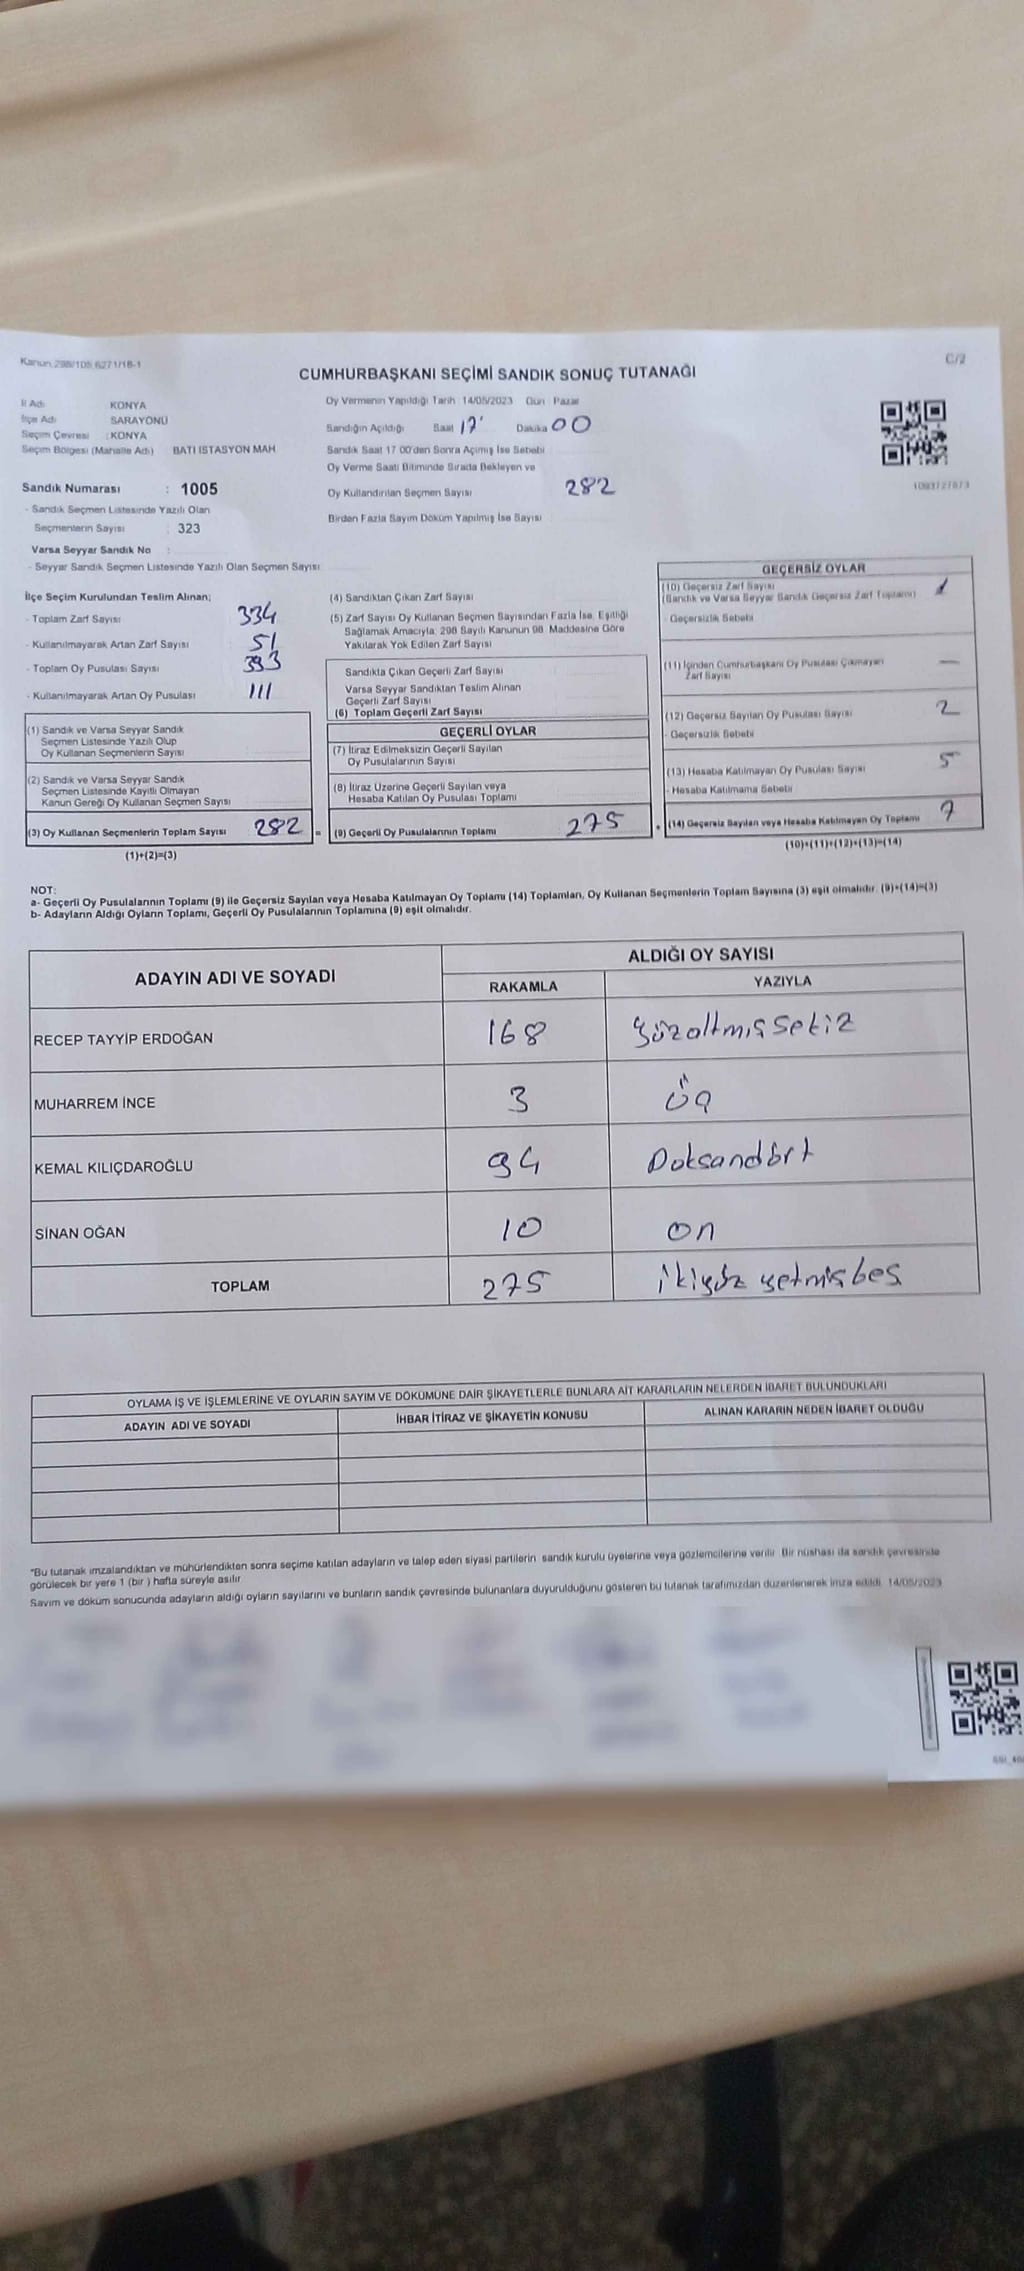 Kanun 298/105 6271/18-1
C/2
CUMHURBAŞKANI SEÇİMİ SANDIK SONUÇ TUTANAĞI
İl Adı KONYA
İlçe Adı SARAYÖNÜ
Seçim Çevresi : KONYA
Seçim Bölgesi (Mahalle Adı) BATI İSTASYON MAH
Sandık Numarası : 1005
- Sandık Seçmen Listesinde Yazılı Olan
Seçmenlerin Sayısı : 323
Varsa Seyyar Sandık No :
- Seyyar Sandık Seçmen Listesinde Yazılı Olan Seçmen Sayısı
Oy Vermenin Yapıldığı Tarih : 14/05/2023 Gün : Pazar
Sandığın Açıldığı Saat 17 Dakika 00
Sandık Saat 17 00'den Sonra Açımış İse Sebebi
Oy Verme Saati Bitiminde Sırada Bekleyen ve
Oy Kullandırılan Seçmen Sayısı 282
Birden Fazla Sayım Döküm Yapılmış İse Sayısı
1093727873
İlçe Seçim Kurulundan Teslim Alınan;
- Toplam Zarf Sayısı 334
- Kullanılmayarak Artan Zarf Sayısı 51
- Toplam Oy Pusulası Sayısı 393
- Kullanılmayarak Artan Oy Pusulası 111
(1) Sandık ve Varsa Seyyar Sandık
Seçmen Listesinde Yazılı Olup
Oy Kullanan Seçmenlerin Sayısı
(2) Sandık ve Varsa Seyyar Sandık
Seçmen Listesinde Kayıtlı Olmayan
Kanun Gereği Oy Kullanan Seçmen Sayısı
(3) Oy Kullanan Seçmenlerin Toplam Sayısı 282 =
(1)+(2)=(3)
(4) Sandıktan Çıkan Zarf Sayısı
(5) Zarf Sayısı Oy Kullanan Seçmen Sayısından Fazla İse, Eşitliği
Sağlamak Amacıyla, 298 Sayılı Kanunun 98. Maddesine Göre
Yakılarak Yok Edilen Zarf Sayısı
Sandıkta Çıkan Geçerli Zarf Sayısı
Varsa Seyyar Sandıktan Teslim Alınan
Geçerli Zarf Sayısı
(6) Toplam Geçerli Zarf Sayısı
GEÇERLİ OYLAR
(7) İtiraz Edilmeksizin Geçerli Sayılan
Oy Pusulalarının Sayısı
(8) İtiraz Üzerine Geçerli Sayılan veya
Hesaba Katılan Oy Pusulası Toplamı
(9) Geçerli Oy Pusulalarının Toplamı 275 +
GEÇERSİZ OYLAR
(10) Geçersiz Zarf Sayısı
(Sandık ve Varsa Seyyar Sandık Geçersiz Zarf Toplamı)
- Geçersizlik Sebebi
(11) İçinden Cumhurbaşkanı Oy Pusulası Çıkmayan —
Zarf Sayısı
(12) Geçersiz Sayılan Oy Pusulası Sayısı 2
- Geçersizlik Sebebi
(13) Hesaba Katılmayan Oy Pusulası Sayısı 5
- Hesaba Katılmama Sebebi
(14) Geçersiz Sayılan veya Hesaba Katılmayan Oy Toplamı 7
(10)+(11)+(12)+(13)=(14)
NOT:
a- Geçerli Oy Pusulalarının Toplamı (9) ile Geçersiz Sayılan veya Hesaba Katılmayan Oy Toplamı (14) Toplamları, Oy Kullanan Seçmenlerin Toplam Sayısına (3) eşit olmalıdır. (9)+(14)=(3)
b- Adayların Aldığı Oyların Toplamı, Geçerli Oy Pusulalarının Toplamına (9) eşit olmalıdır.
ADAYIN ADI VE SOYADI
ALDIĞI OY SAYISI
RAKAMLA YAZIYLA
RECEP TAYYİP ERDOĞAN 168 yüzaltmışsekiz
MUHARREM İNCE 3 üç
KEMAL KILIÇDAROĞLU 94 Doksandört
SİNAN OĞAN 10 on
TOPLAM 275 ikiyüz yetmişbeş
OYLAMA İŞ VE İŞLEMLERİNE VE OYLARIN SAYIM VE DÖKÜMÜNE DAİR ŞİKAYETLERLE BUNLARA AİT KARARLARIN NELERDEN İBARET BULUNDUKLARI
ADAYIN ADI VE SOYADI İHBAR İTİRAZ VE ŞİKAYETİN KONUSU ALINAN KARARIN NEDEN İBARET OLDUĞU
"Bu tutanak imzalandıktan ve mühürlendikten sonra seçime katılan adayların ve talep eden siyasi partilerin sandık kurulu üyelerine veya gözlemcilerine verilir. Bir nüshası da sandık çevresinde
görülecek bir yere 1 (bir ) hafta süreyle asılır.
Sayım ve döküm sonucunda adayların aldığı oyların sayılarını ve bunların sandık çevresinde bulunanlara duyurulduğunu gösteren bu tutanak tarafımızdan düzenlenerek imza edildi. 14/05/2023